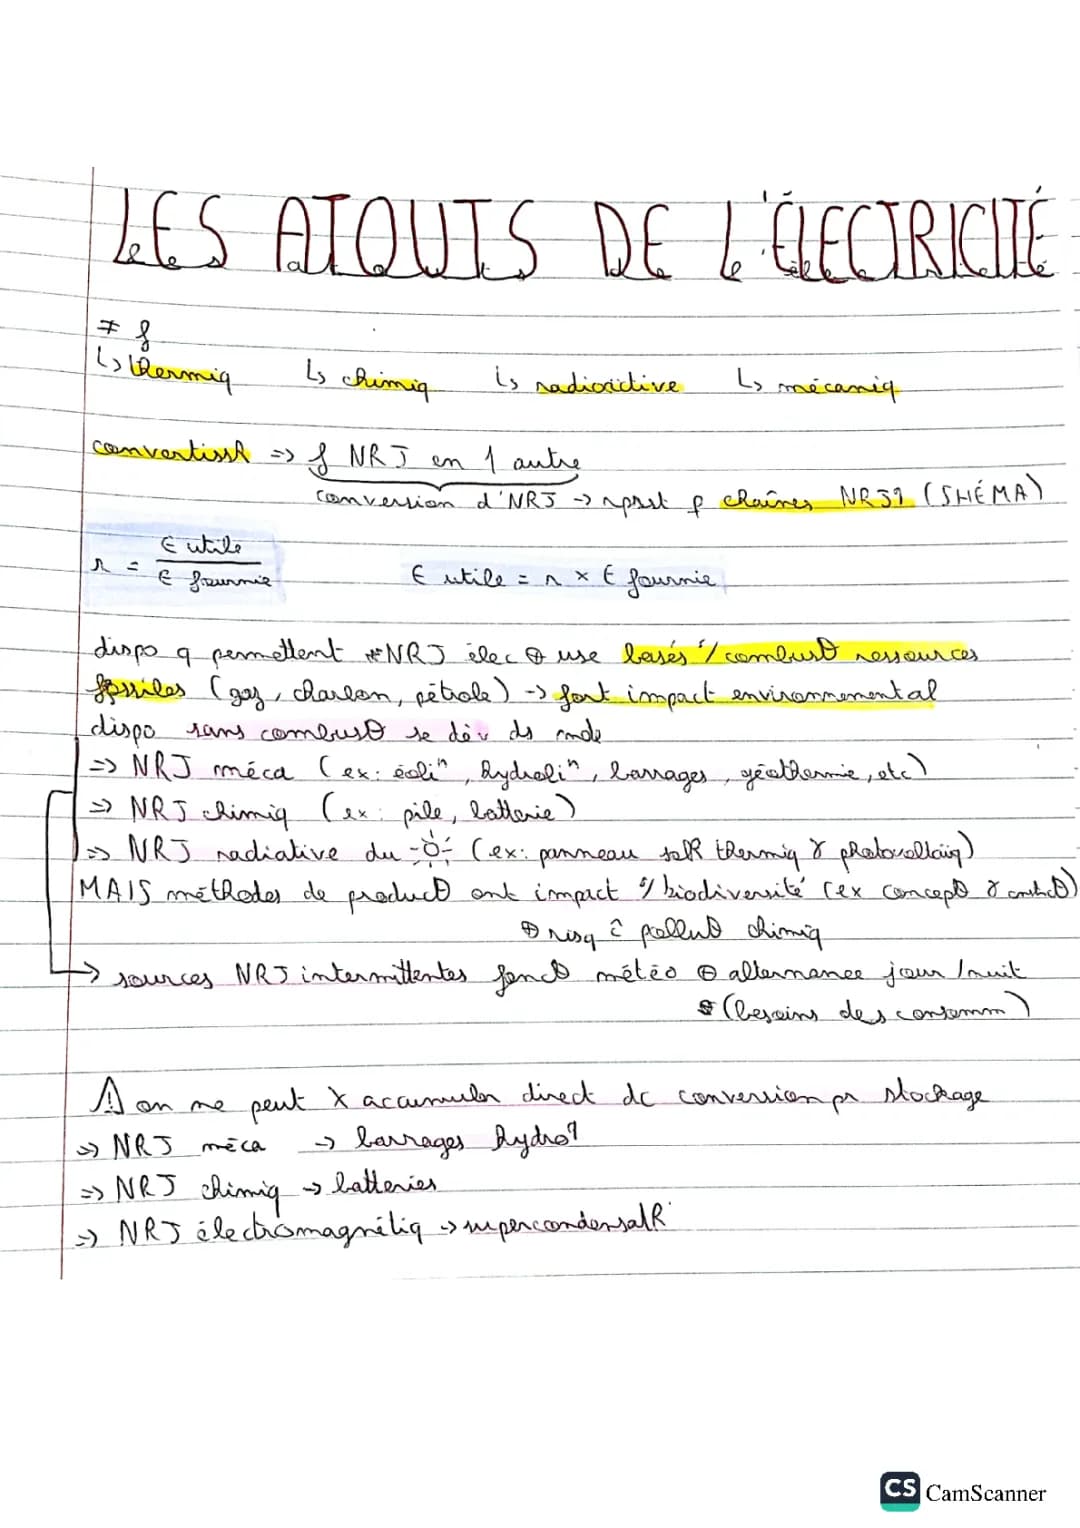 LES ATOUTS DE L'ÉLECTRICITÉ
≠ f
↳ thermiq ↳ chimiq ↳ radiactive ↳ mécaniq
convertissR => f NRJ en 1 autre
conversion d'NRJ -> rprst p chaînes NRJ? (SHÉMA)
r = E utile / E fournie
E utile = r × E fournie
dispo q permettent NRJ élec ⊕ use basés s/ combust° ressources
fossiles (gaz, charbon, pétrole) -> fort impact environnemental
dispo sans combust° se dév ds mde
=> NRJ méca (ex: éolin, hydrolin, barrages, géothermie, etc)
=> NRJ chimiq (ex: pile, batterie)
=> NRJ radiative du ☼ (ex: panneau solR thermiq & photovoltaiq)
MAIS méthodes de product° ont impact s/ biodiversité (ex concept° & const°)
⊕ risq ĉ pollut° chimiq
-> sources NRJ intermittentes fonct° météo ⊕ alternance jour/nuit
(besoins des consomm)
⚠ on ne peut X accumuler direct dc conversion pr stockage
=> NRJ méca -> barrages hydro?
=> NRJ chimiq -> batteries
=> NRJ électromagnétiq -> supercondensatR
CS CamScanner